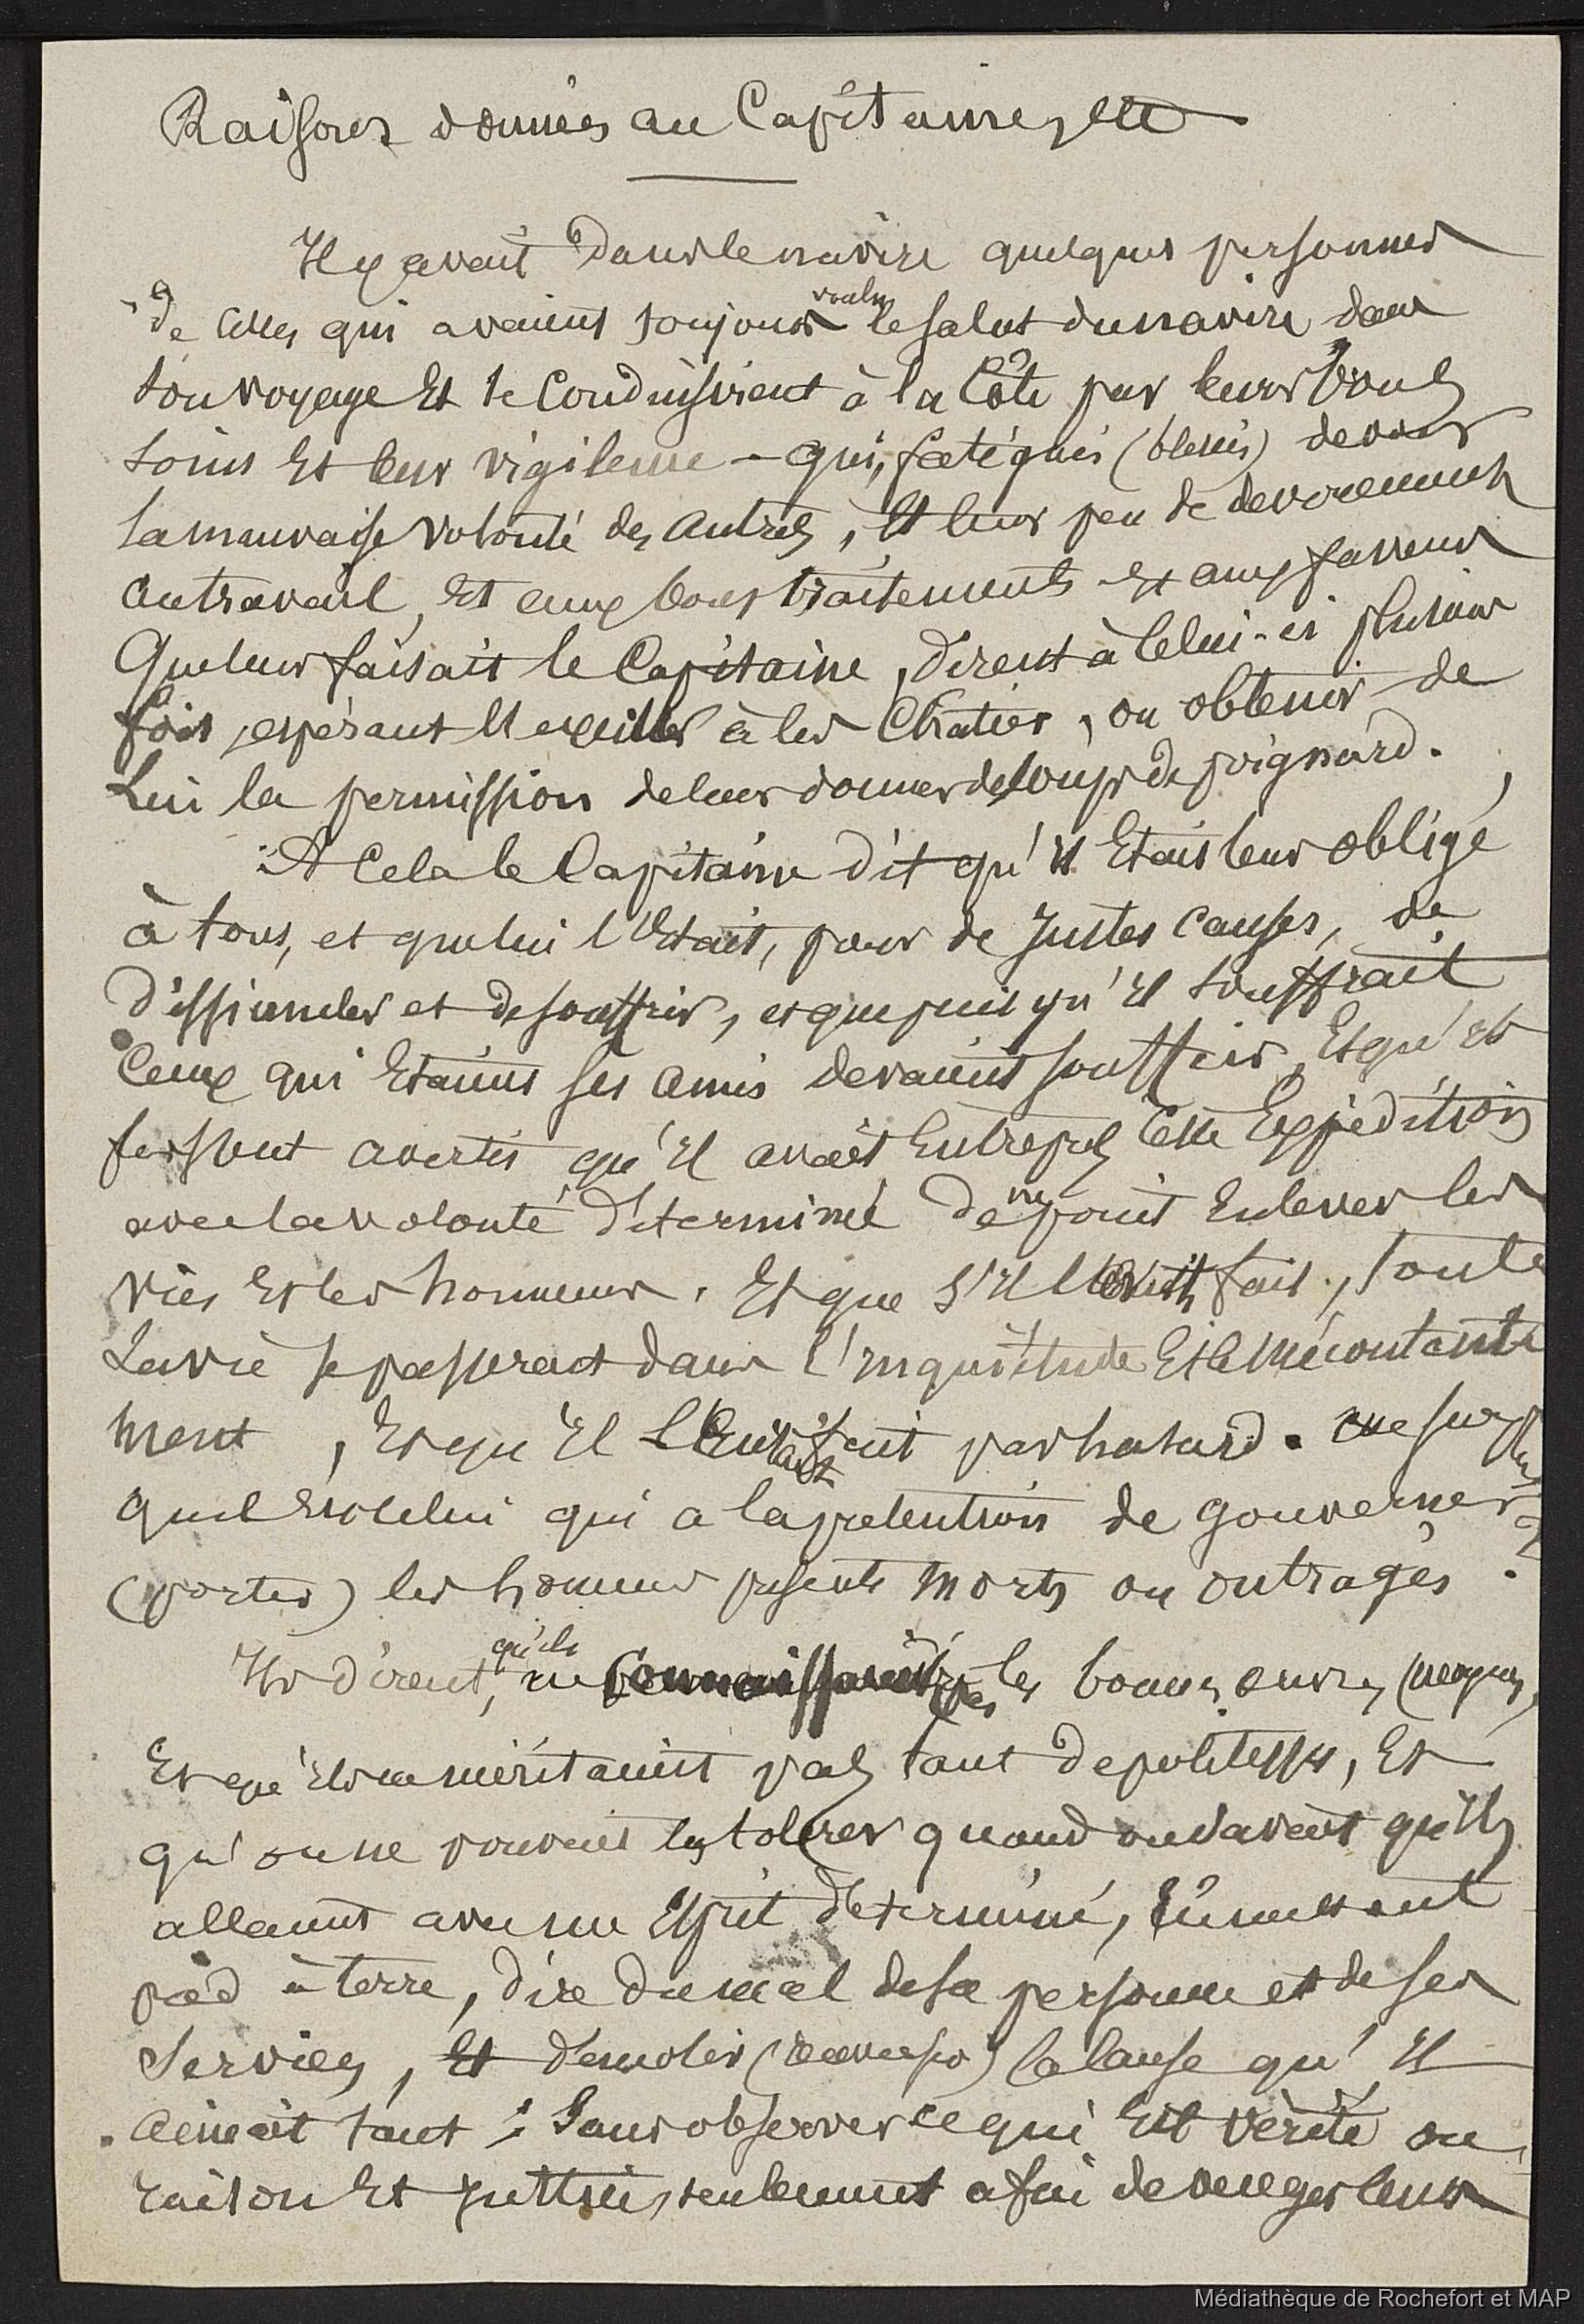 Raisons données au Capitaine, etc
Il y avait dans le navire quelques personnes
de celles qui avaient toujours voulu le salut du navire dans
son voyage Et le Conduisirent à la Côte par leurs bons
soins Et leur vigilence - qui, fatigués (blessés) de voir
la mauvaise volonté des autres, Et leur peu de dévouement
au travail, Et aux bons traitements Et aux faveurs
Que leur faisait le Capitaine, dirent à Celui-ci plusieurs
fois, espérant l'exciter à les Chatier, ou obtenir de
Lui la permission de leur donner des coups de poignard.
A Cela le Capitaine dit qu'il Etait leur obligé
à tous, et que lui l'Etait, pour de Justes Causes, de
dissimuler et de souffrir, et que puis qu'Il souffrait
Ceux qui Etaient ses amis devaient souffrir, Et qu'ils
fussent avertis qu'Il avait Entrepris Cette Expédition
avec la volonté déterminé de ne point Enlever les
vies Et les honneurs. Et que s'Il fait, toute
La vie se passerait dans l'inquiétude Et le mécontente
ment, Et qu'Il fait par hasard.
Quel Est Celui qui a la prétention de gouverner
(porter) les hommes morts ou outragés.
Ils dirent, qu'ils ne Connaissaient pas les bonnes œuvres
Et qu'Ils ne méritaient pas tant de politesses, Et
qu'on ne pouvait les tolérer quand on savait qu'Ils
allaient avec un Esprit déterminé, En mettant
pied à terre, dire du mal de sa personne et de ses
Services, Et démolir la Cause qu'Il
aimait tant ; Sans observer ce qui Est vérité ou
raison Et justice, seulement afin de venger leurs
Médiathèque de Rochefort et MAP